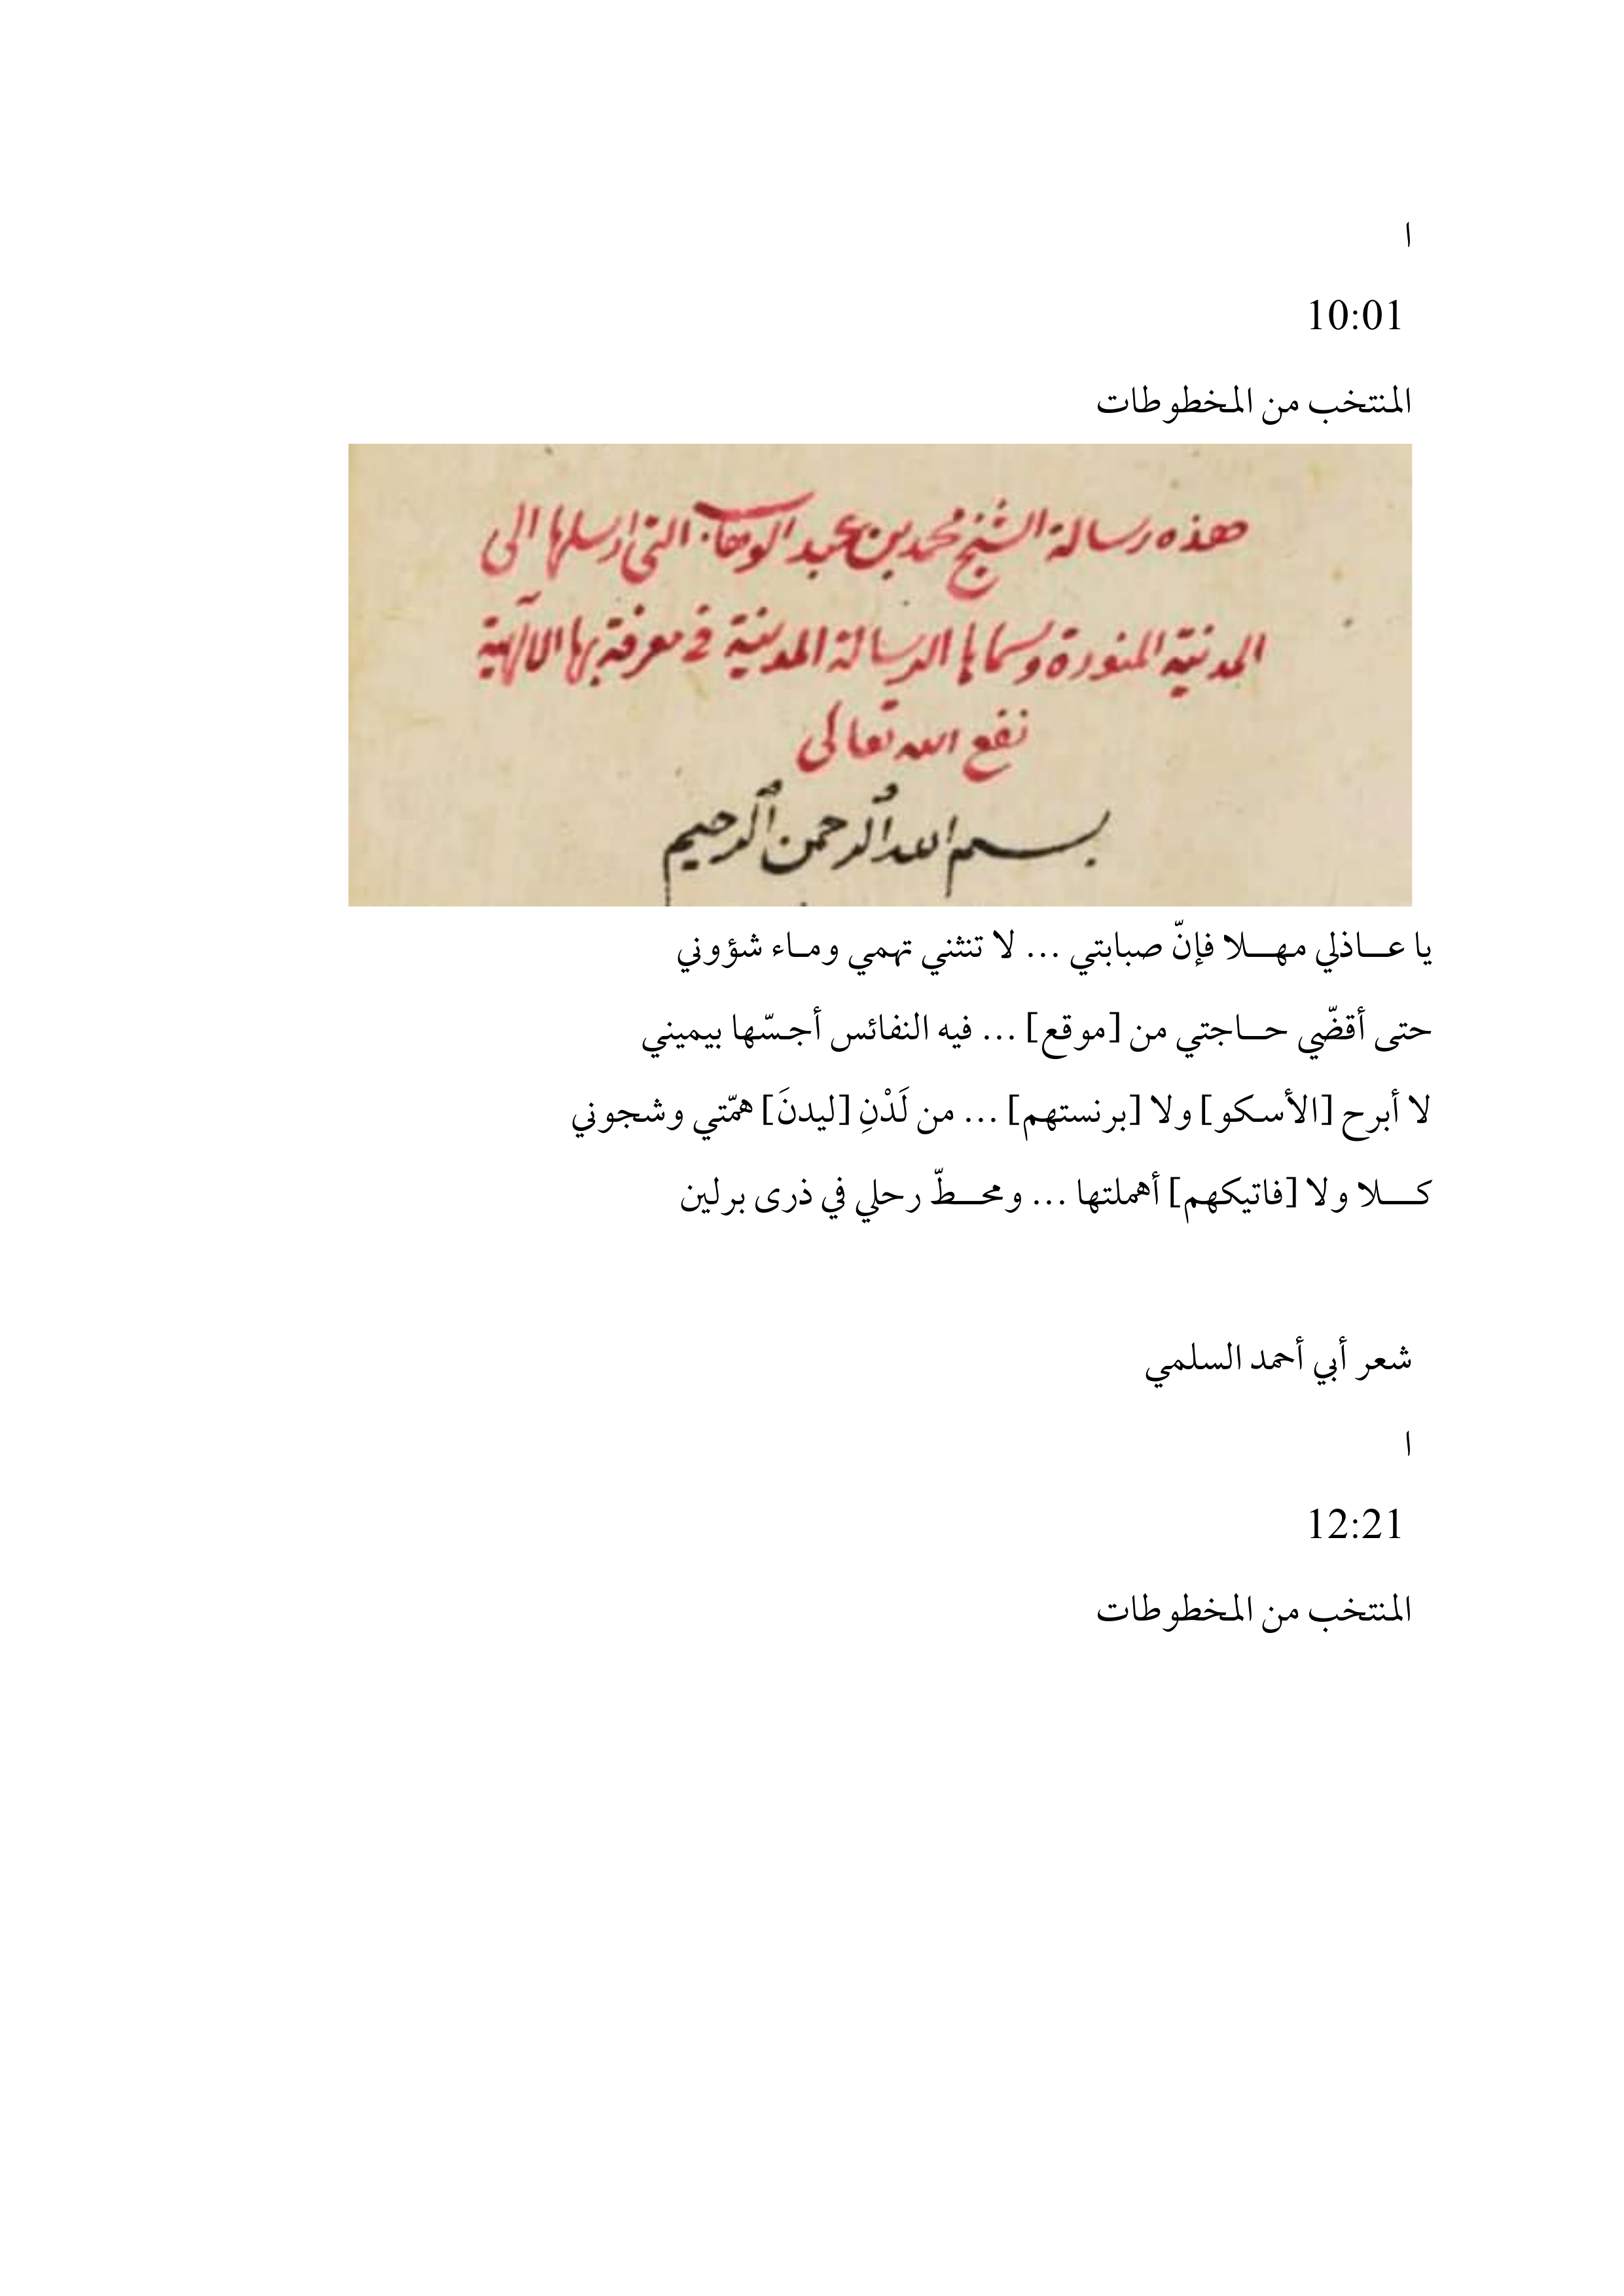 ا
10:01
المنتخب من المخطوطات
هذه رسالة الشيخ محمد بن عبد الوهاب التي ارسلها الى
المدنية المنورة وسماها الرسالة المدينية في معرفة بها الالهية
نفع الله تعالى
بسم الله الرحمن الرحيم
يا عـــاذلي مهـــلا فإنّ صبابتي ... لا تنثني تهمي ومـاء شؤوني
حتى أقضّي حـــاجتي من [موقع] ... فيه النفائس أجـسّها بيميني
لا أبرح [الأسكو] ولا [برنستهم] ... من لَدْنِ [ليدنَ] همّتي وشجوني
كـــــلا ولا [فاتيكهم] أهملتها ... ومحـــطّ رحلي في ذرى برلين
شعر أبي أحمد السلمي
ا
12:21
المنتخب من المخطوطات